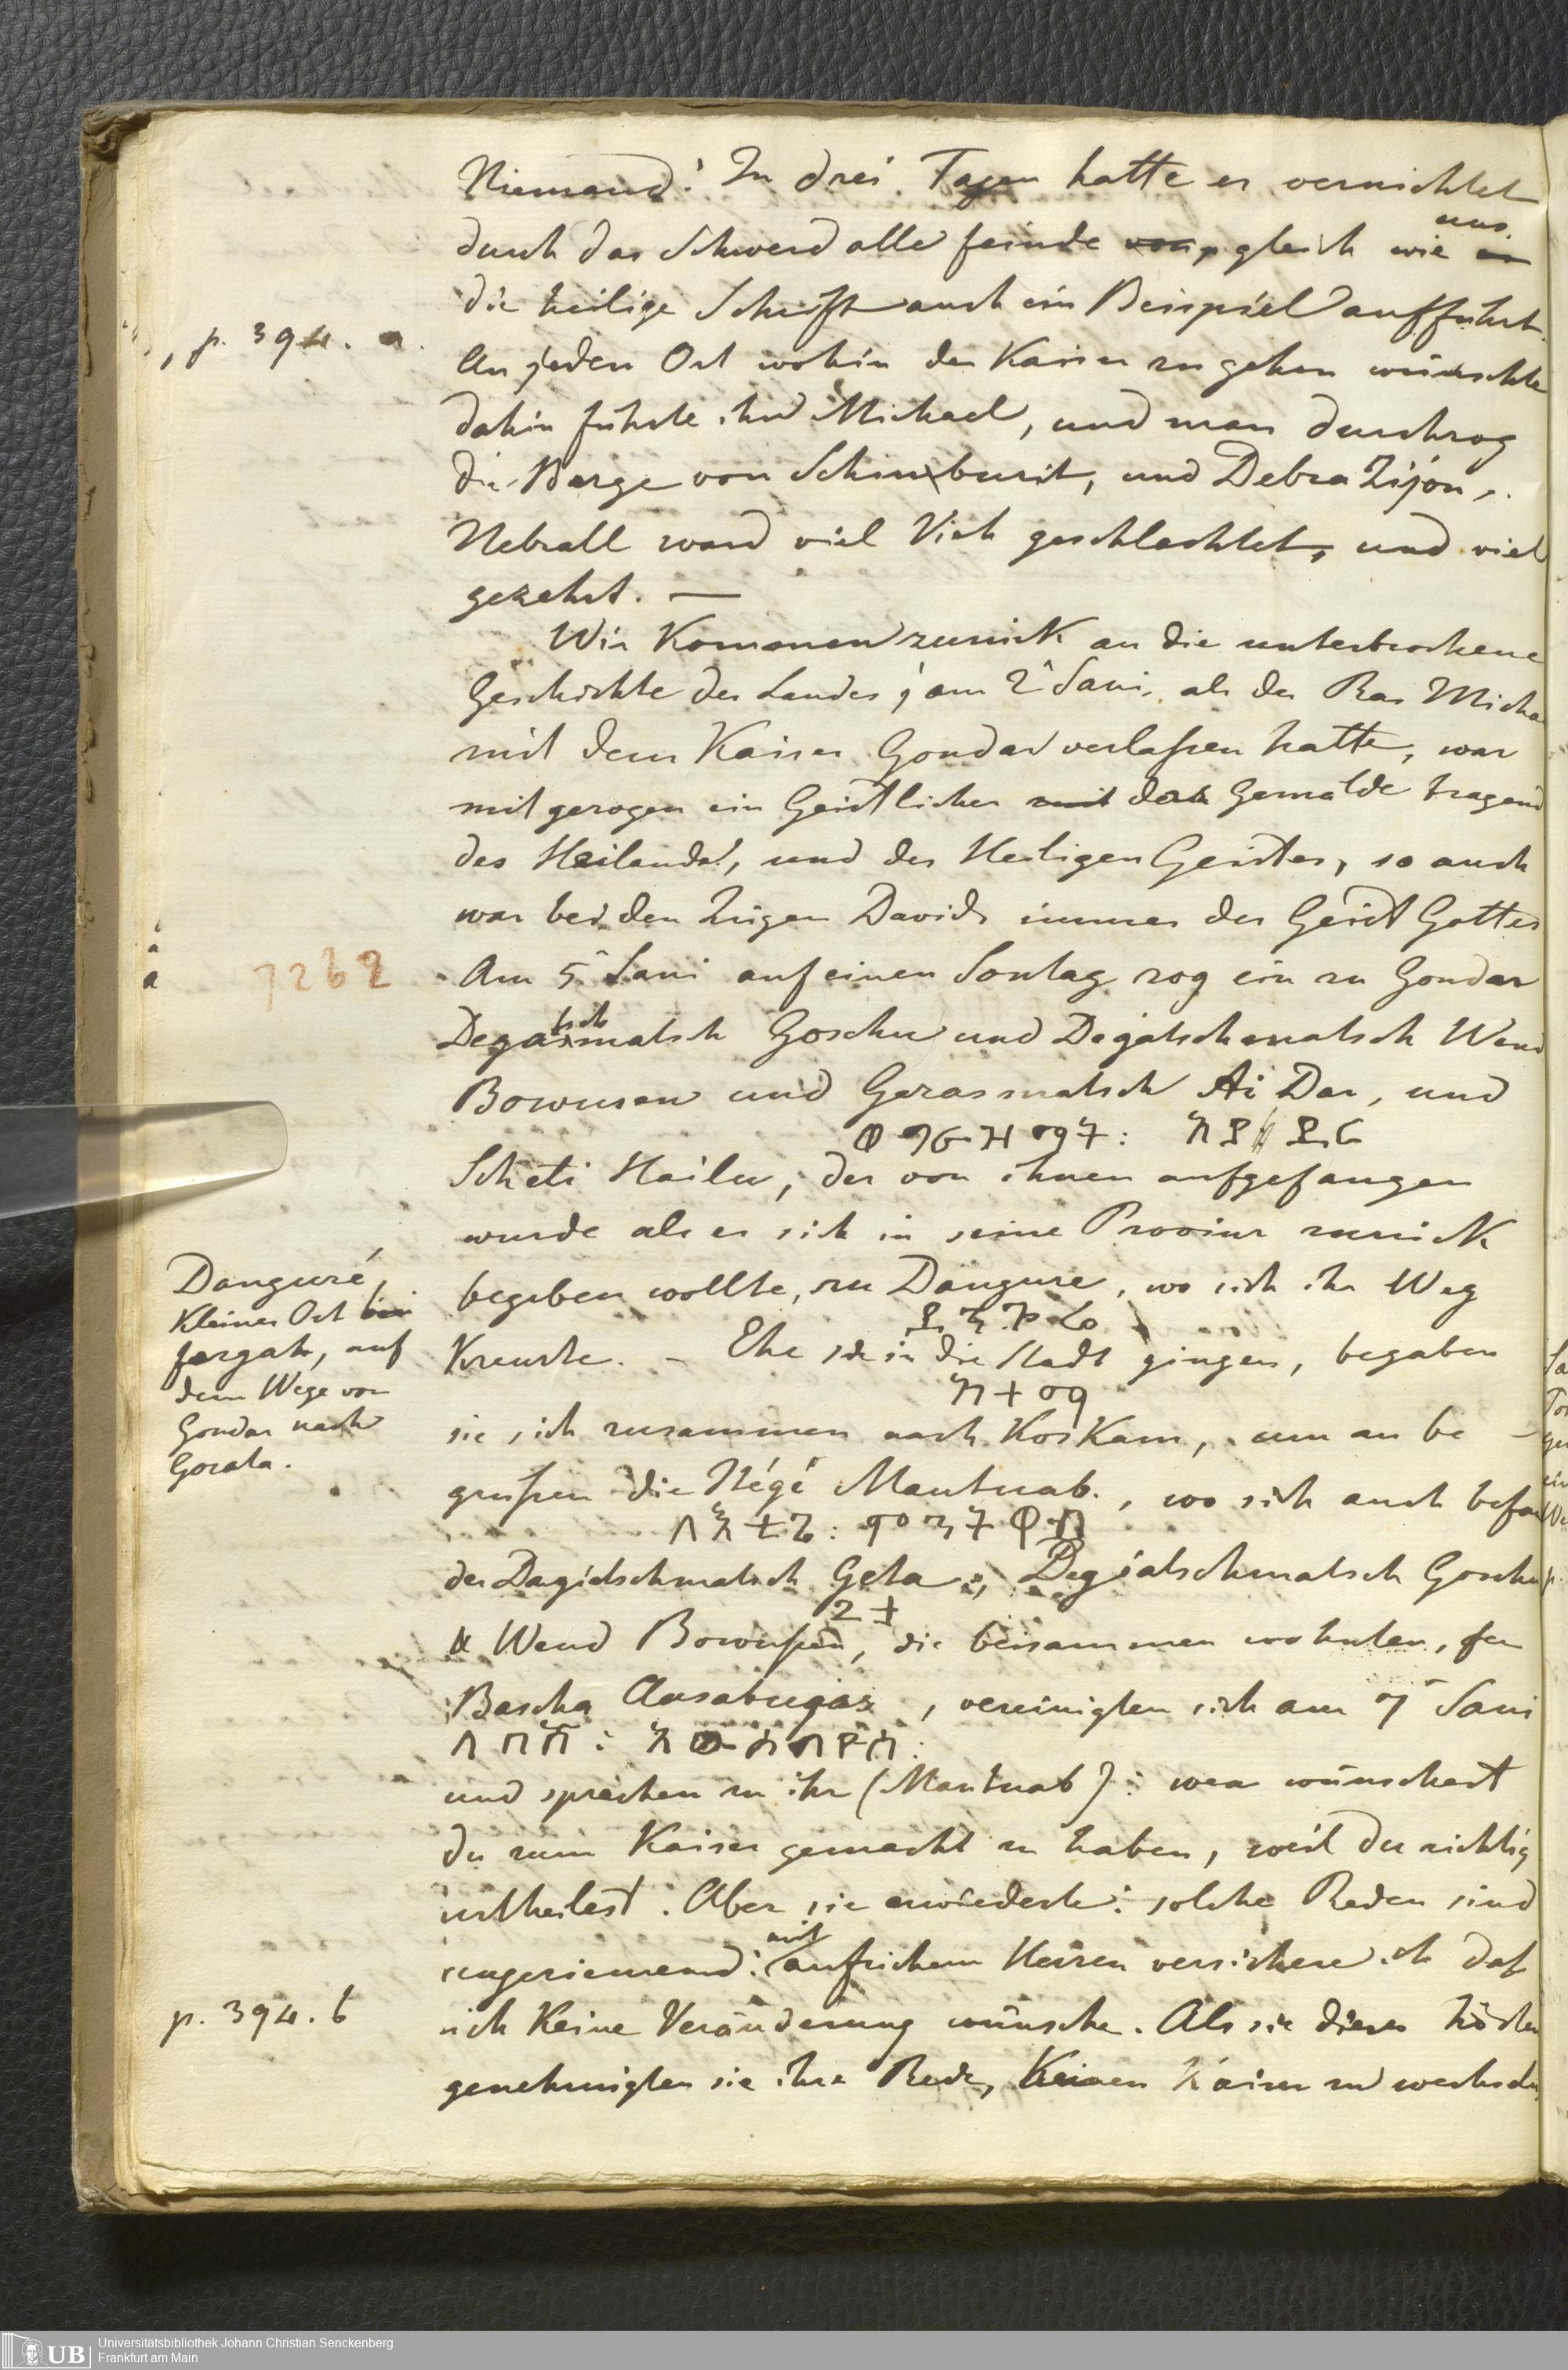 Niemand! In drei Tagen hatte er vernichtet
durch das Schwerd alle feinde gleich wie uns
die heilige Schrift auch ein Beispiel aufführt.
, p. 394. a.
An jeden Ort wohin der Kaiser zu gehen wünschte
dahin führte ihn Michael, und man durchzog
die Berge von Schinburit, und Debra Zijon,
Uebrall ward viel Vieh geschlachtet, und viel
gezehrt. —
Wir Kommen zurück an die unterbrochene
Geschichte des Landes; am 2t Sani, als der Ras Micha
mit dem Kaiser Gondar verlaßen hatte, war
mit gezogen ein Geistlicher mit das Gemälde tragend
des Heilands, und des Heiligen Geistes, so auch
war bei den Zügen Davids immer der Geist Gottes
7262
Am 5t Sani auf einen Sontag zog ein zu Gondar
Degatschmatsch Goschu und Degatschmatsch Wend
Bowusen und Gerasmatsch Ai Dar, und
ወ ግራዝማች: አይ ዳር
Scheti Hailu, der von ihnen aufgefangen
wurde als er sich in seine Provinz zurück
begeben wollte, zu Dangure, wo sich ihr Weg
Danguré,
Kleiner Ort bei
fergah, auf
dem Wege von
Gondar nach
Gorata.
Kreuzte. – Ehe sie in die Stadt gingen, begaben
sie sich zusammen nach KosKam, um zu be-
grußen die Itégé Mantuab, wo sich auch befan
ለእቴጌ: ምንትዋብ
der Dagiatschmatsch Geta, Degiatschmatsch Goschu
ጌታ
& Wend Bowußen, die beisammen wohnten, der
Bascha Ausabugas, vereinigten sich am 7t Sani
und sprachen zu ihr (Mantuab): wen wünschest
du zum Kaiser gemacht zu haben, weil du richtig
urtheilest. Aber sie erwiederte: solche Reden sind
ungeziemend: mit aufrichem Herzen versichere ich daß
p. 394. b
ich Keine Veränderung wünsche. Als sie dieses hörten
genehmigten sie ihre Rede, Keinen Kaiser zu wechseln
Universitätsbibliothek Johann Christian Senckenberg
UB
Frankfurt am Main